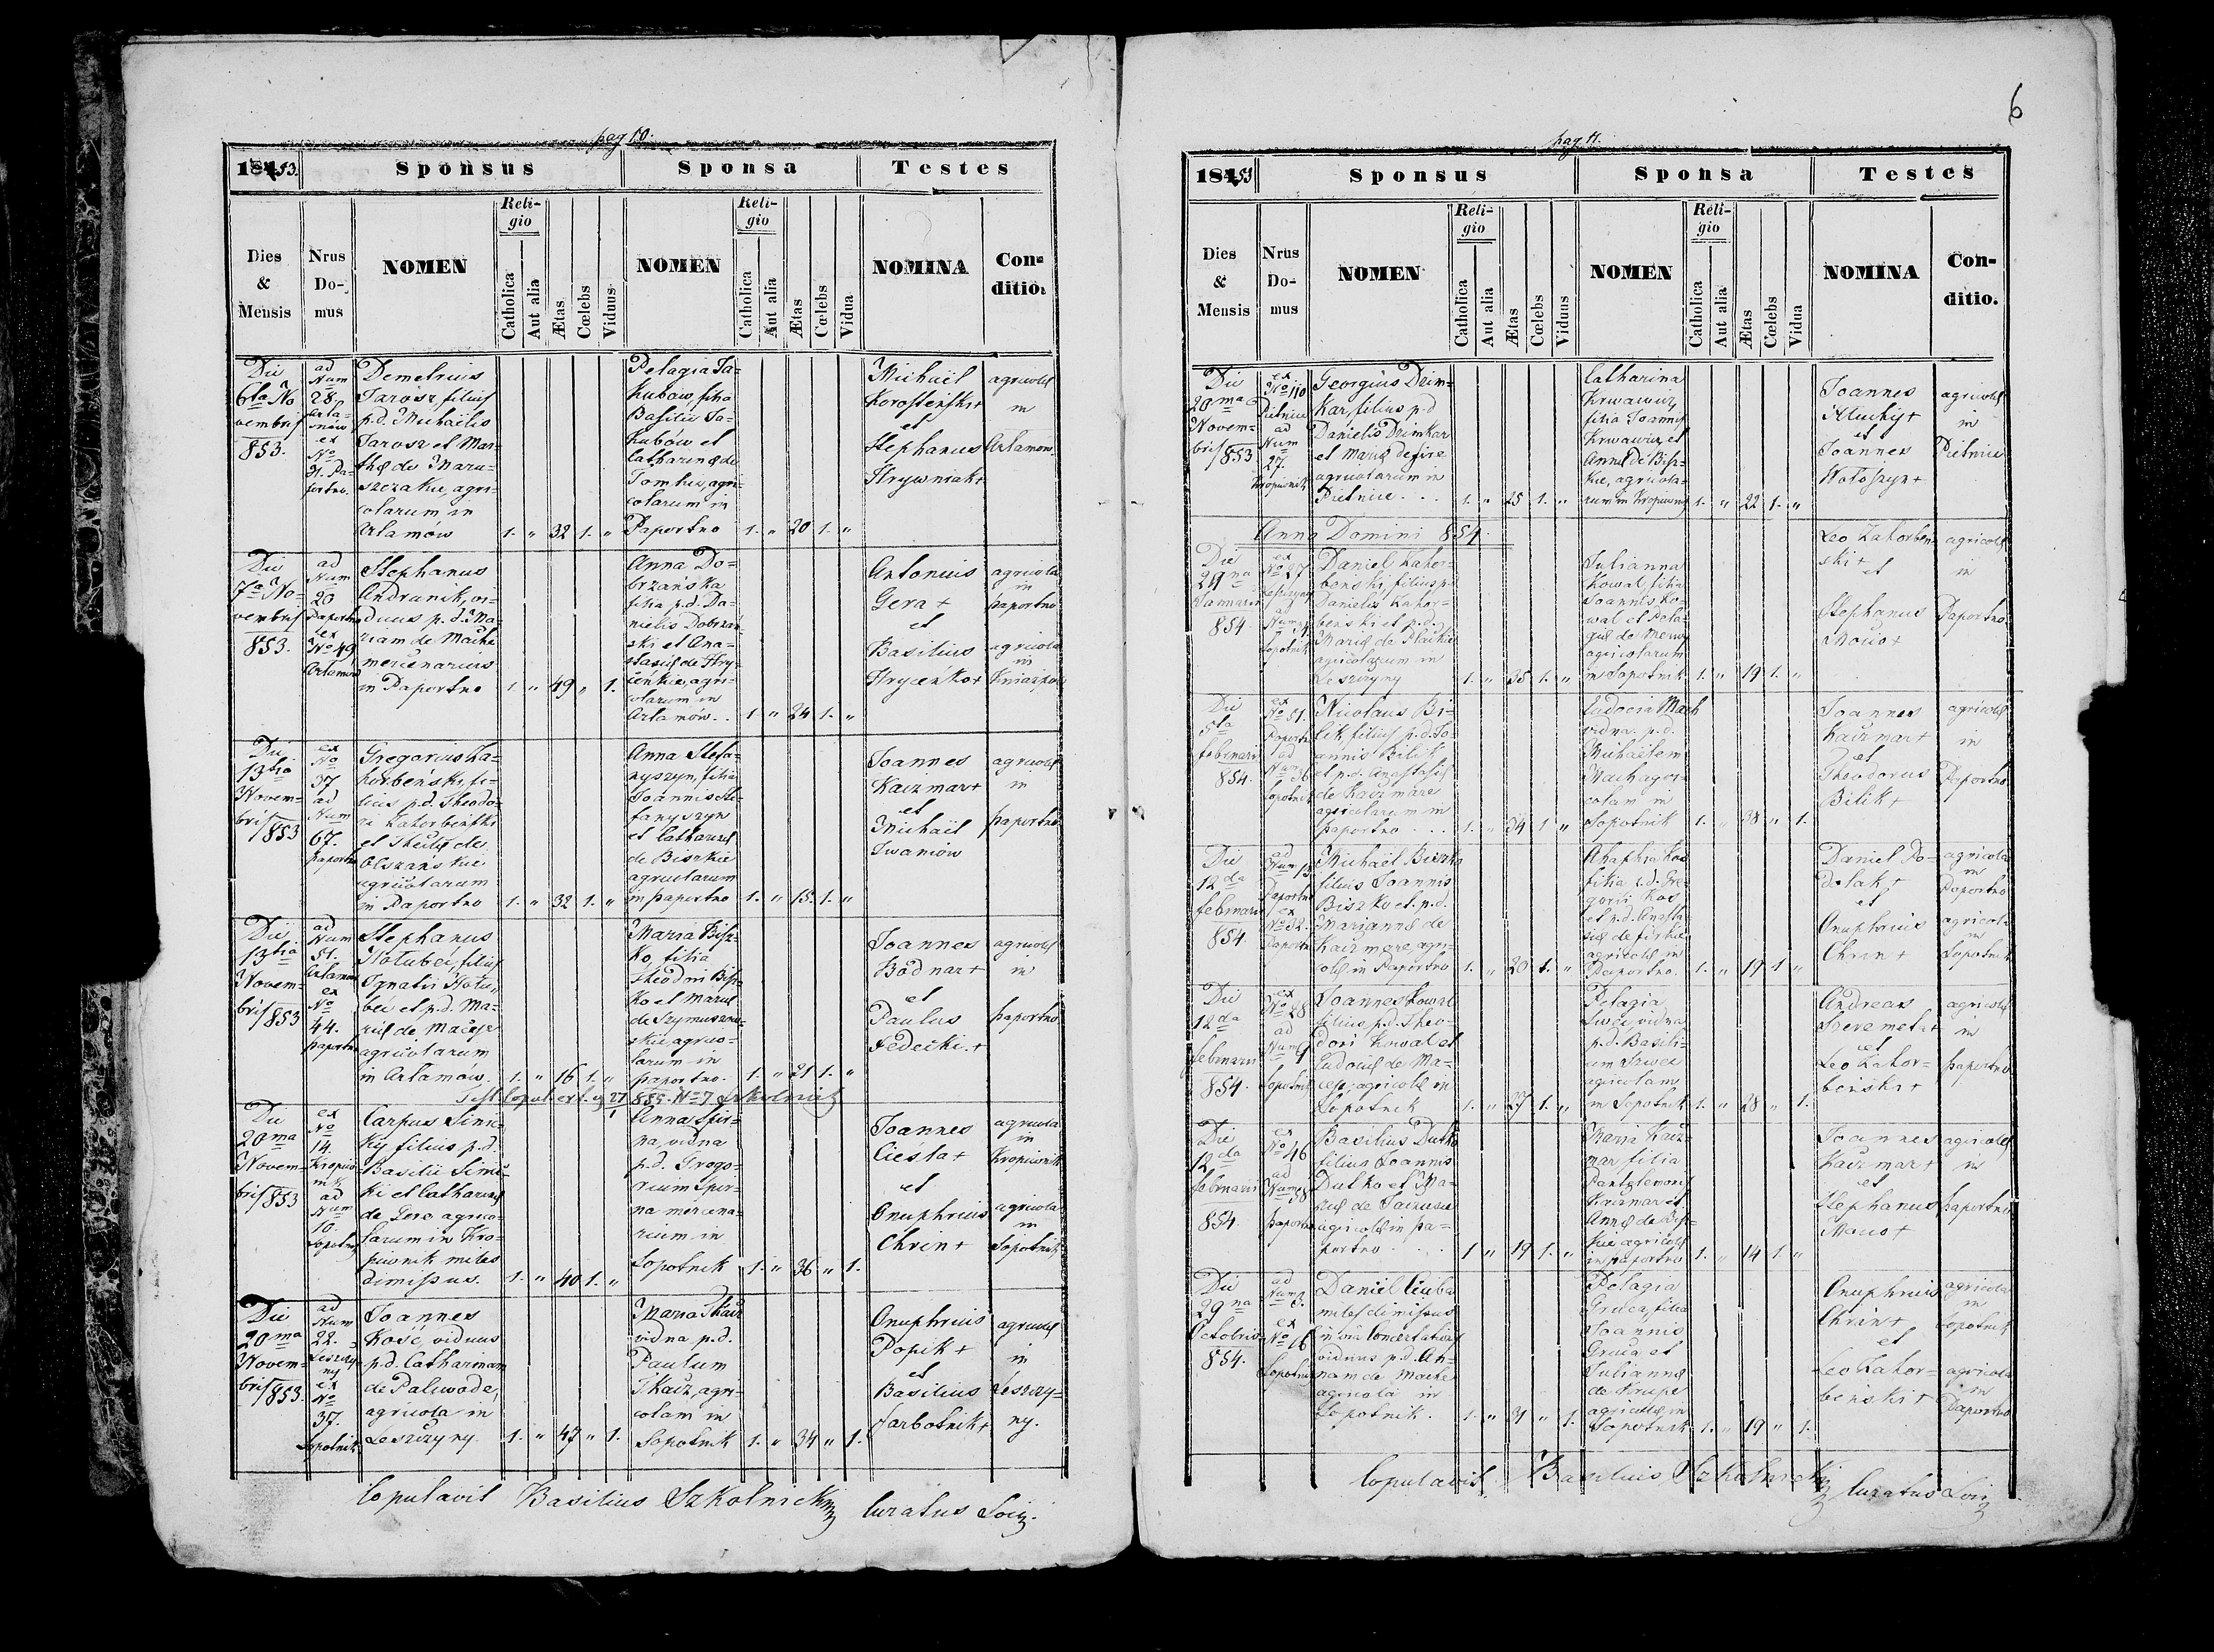 pag 10.
1853. Sponsus Sponsa Testes
Dies & Mensis
Nrus Do- mus
NOMEN
Reli- gio
Catholica
Aut alia
Ætas
Cœlebs
Viduus
NOMEN
Reli- gio
Catholica
Aut alia
Ætas
Cœlebs
Vidua
NOMINA
Con- ditio.
Die
6ta No
vembris
853.
ad
Num
28.
ex
No
31. Pa-
portno.
Demetrius
Jarosz, filius
p.d. Michaëlis
Jarosz et Mar-
thæ de Maru-
szczakie, agri-
colarum in
Arłamów
1. " 32 1. "
Pelagia Ja-
kubów, filia
Basilii Ja-
kubów et
Catharinæ de
Tomkie, agri-
colarum in
Paportno
1. " 20 1. "
Michaël
Korosteński+
et
Stephanus
Hrywniak+
agricolæ
in
Arłamow
Die
7a No-
vembris
853.
ad
Num
20
Paportno
ex
No 49
Arłamów
Stephanus
Andrunik, vi-
duus p.d. Ma-
riam de Maćke
mercenarius
in Paportno
1. " 49 " 1.
Anna Do-
brzańska
filia p.d. Da-
nielis Dobrzań-
ski et Ana-
stasiæ de Hry-
ćeńkie, agri-
colarum in
Arłamów..
1. " 24 1. "
Antonius
Gera +
et
Basilius
Hryćeńko+
agricola
in
Paportno
agricola
in
Die
13tia
Novem-
bris 853
ex
No
37
ad
Num
67.
Paportno
Gregorius Za-
horbeński, fi-
lius p.d. Theodo-
ri Zahorbeński
et Theclæ de
Olszańskie
agricolarum
in Paportno
1. " 32 1. "
Anna Stefa-
nyszyn, filia
Joannis Ste-
fanyszyn
et Catharinæ
de Biszkie
agricolarum
in Paportno
1. " 15. 1. "
Joannes
Kaczmar+
et
Michaël
Iwaniów
agricolæ
in
Paportno
Die
13tia
Novem-
bris 853
ad
Num
51.
Arłamow
ex
No
44.
Paportno
Stephanus
Hołubeć, filius
Ignatii Hołu-
beć et p.d. Ma-
riæ de Maćeje
agricolarum
in Arłamów.
1. " 16 1. "
Maria Bisz-
ko, filia
Theodori Bisz-
ko et Mariæ
de
agrico-
larum in
Paportno.
1. " 21 1. "
Joannes
Bodnar+
et
Paulus
Fedećki.+
agricolæ
in
Paportno
Die
20ma
Novem-
bris 853
ex
No
14.
Kropiw-
nik
ad
Num
10.
Sopotnik
Carpus Simić-
ky filius p.d.
Basilii Simić-
ki et Catharinæ
de Gere agrico-
larum in Kro-
piwnik miles
dimissus.
1. " 40 1. "
Anna Spir-
na, vidua
p.d. Grego-
rium Spir-
na mercena-
rium in
Sopotnik
1. " 36 " 1.
Joannes
Ciesla+
et
Onuphrius
Chrin+
agricola
in
Kropiwnik
agricola
in
Sopotnik
Die
20ma
Novem-
bris 853.
ad
Num
22.
Leszczy-
ny
ex
No
37.
Sopotnik
Joannes
Kość, viduus
p.d. Catharinam
de Paliwode,
agricola in
Leszczyny.
1. " 47 " 1.
Maria Tkacz
vidua p.d.
Paulum
Tkacz, agri-
colam in
Sopotnik
1. " 34 " 1.
Onuphrius
Popik+
et
Basilius
Jarbotnik+
agricolæ
in
Leszczy-
ny.
Copulavit Basilius Szkolnicki Curatus Loci
6
pag 11.
1853 Sponsus Sponsa Testes
Dies & Mensis
Nrus Do- mus
NOMEN
Reli- gio
Catholica
Aut alia
Ætas
Cœlebs
Viduus
NOMEN
Reli- gio
Catholica
Aut alia
Ætas
Cœlebs
Vidua
NOMINA
Con- ditio.
Die
20ma
Novem-
bris 853
ex
No 110
Pietnice
ad
Num
27.
Kropiwnik
Georgius Dzim-
kar, filius p.d.
Danielis Dzimkar
et Mariæ de
agricolarum in
Pietnice...
1. " 25 1. "
Catharina
Krwawicz,
filia Joannis
Krwawicz, et
Annæ de Bisz-
kie, agricola-
rum in Kropiwnik
1. " 22 1. "
Joannes
et
Joannes
Wołoszyn+
agricolæ
in
Pietnice
Anno Domini 854.
Die
29na
Januarii
854.
ex
No 27
Leszczyny
ad
Num
Sopotnik
Daniel Zahor-
beński, filius p.d.
Danielis Zahor-
beński et p.d.
Mariæ de
agricolarum in
Leszczyny
1. " 35 1. "
Julianna
Kowal, filia
Joannis Ko-
wal et Pela-
giæ de
agricolarum
in Sopotnik
1. " 19 1. "
Leo Zahorbeń-
ski+
et
Stephanus
agricolæ
in
Paportno
Die
5ta
februarii
854.
ex
No 51.
Paportno
ad
Num 36
Sopotnik
Nicolaus Bi-
lik, filius p.d. Jo-
annis Bilik
et p.d. Anastasiæ
de Kaczmare
agricolarum in
Paportno....
1. " 34 1 "
Eudocia Mach
vidua p.d.
Michaëlem
Mach agri-
colam in
Sopotnik
1. " 38 " 1.
Joannes
Kaczmar+
et
Theodorus
Bilik+
agricolæ
in
Paportno
Die
12da
februarii
854.
ad
Num 13
Paportno
ex
No 32.
Paportno
Michaël Biszko
filius Joannis
Biszko et p.d.
Mariannæ de
Kaczmare, agri-
colæ in Paportno
1. " 20 1. "
Ahaphia Kos
filia p.d. Gre-
gorii Kos
et p.d. Anasta-
siæ de
agricolæ in
Paportno.
1. " 19 1 "
Daniel Po-
dolak+
et
Onuphrius
Chrin+
agricola
in
Paportno
agricola
in
Sopotnik
Die
12da
februarii
854.
ex
No 28
ad
Num
Sopotnik
Joannes Kowal
filius p.d. Theo-
dori Kowal et
Eudociæ de Ma-
ceje, agricolæ in
Sopotnik
1. " 27 1. "
Pelagia
Szwec, vidua
p.d. Basili-
um Szwec
agricolam
in Sopotnik
1. " 28 " 1.
Andreas
Szeremeta+
et
Leo Zahor-
beński+
agricolæ
in
Paportno
Die
12da
februarii
854
ex
No 46
ad
Num 58
Paportno
Basilius Dutko
filius Joannis
Dutko et Ma-
riæ de
agricolæ in Pa-
portno....
1 " 19 1. "
Maria Kacz-
mar filia
Pantelemonis
Kaczmar et
Annæ de Bisz-
kie agricolæ
in Paportno
1. " 14 1. "
Joannes
Kaczmar+
et
Stephanus
agricolæ
in
Paportno
Die
29na
Octobris
854.
ad
Num 3.
ex
No 16
Sopotnik
Daniël Ciuba
miles dimissus
viduus p.d. An-
nam de Maćke
agricola in
Sopotnik.
1. " 31 " 1.
Pelagia
Gruca, filia
Joannis
Gruca et
Juliannæ
de Krupe
agricolæ in
Sopotnik
1. " 19 " 1.
Onuphrius
Chrin+
et
Leo Zahor-
beński+
agricola
in
Sopotnik
agricola
in
Paportno
Copulavit Basilius Szkolnicki Curatus Loci